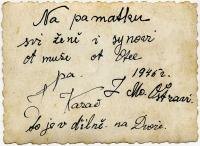 Na památku
svi ženi i synovi
ot muže ot Otce
pa. 1946 r.
Karač Z Mo. Ostravi.
to je v dílně. na Dvoře.